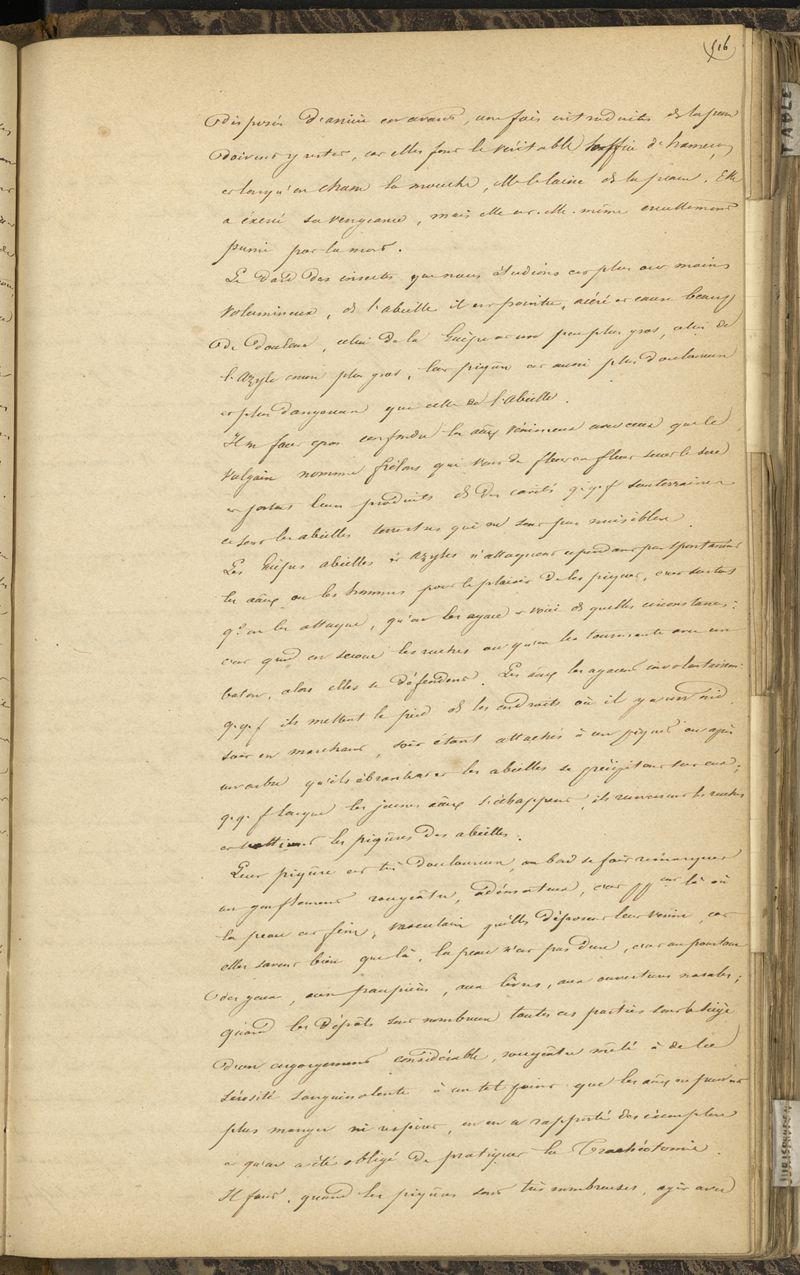 516
disposés d'arrière en avant, une fois introduits ds la peau
doivent y rester, car elles font le véritable office de hameçon
et lorsqu'on chasse la mouche, elle le laisse ds la peau. Elle
a exercé sa vengeance, mais elle est elle-même cruellement
punie par la mort.
Le dard des insectes que nous étudions est plus ou moins
volumineux, ds l'abeille il est pointu, acéré et cause beaucp
de douleur, celui de la Guêpe est un peu plus gros, celui de
l'Azyle encore plus gros, leur piqûre est aussi plus douloureuse
et plus dangereuse que celle de l'Abeille.
Il ne faut pas confondre les aâux vénimeux avec ceux que le
vulgaire nomme frélons qui vont de fleur en fleur sucer le suc
et portent leurs produits ds des cavités q.q.f souterraines
ce sont les abeilles terrestres qui ne sont pas nuisibles.
Les Guêpes abeilles et Azyles n'attaquent cependant pas spontanémt
les aâux ou les hommes pour le plaisir de les piquer, c'est surtout
qd on les attaque, qu'on les agace et voici ds quelles circonstances:
c'est quand on secoue les ruches ou qu'on les tourmente avec un
baton, alors elles se défendent. Les aâux les agacent involontairemt
q.q.f ils mettent le pied ds les endroits où il y a un nid
soit en marchant, soit étant attachés à un piquet ou après
un arbre qu'ils ébranlent et les abeilles se précipitent sur eux;
q.q.f lorsque les jeunes aâux s'échappent, ils renversent les ruches
et les piqûres des abeilles.
Leur piqûre est très douloureuse, au bord se fait remarquer
un gonflement rougeâtre, œdémateux, c'est là où
la peau est fine, vasculaire qu'elles déposent leur venin, car
elles savent bien que là, la peau n'est pas dure, c'est au pourtour
des yeux, aux paupières, aux lèvres, aux ouvertures nasales;
quand les dépôts sont nombreux toutes ces parties sont le siège
d'un engorgement considérable, rougeâtre mêlé à de la
sérosité sanguinolente à un tel point que les aâux ne peuvent
plus manger ni respirer, on en a rapporté des exemples
et qu'on a été obligé de pratiquer la Trachéotomie.
Il faut, quand les piqûres sont très nombreuses, agir avec
TABLE
JURISPRUDEN